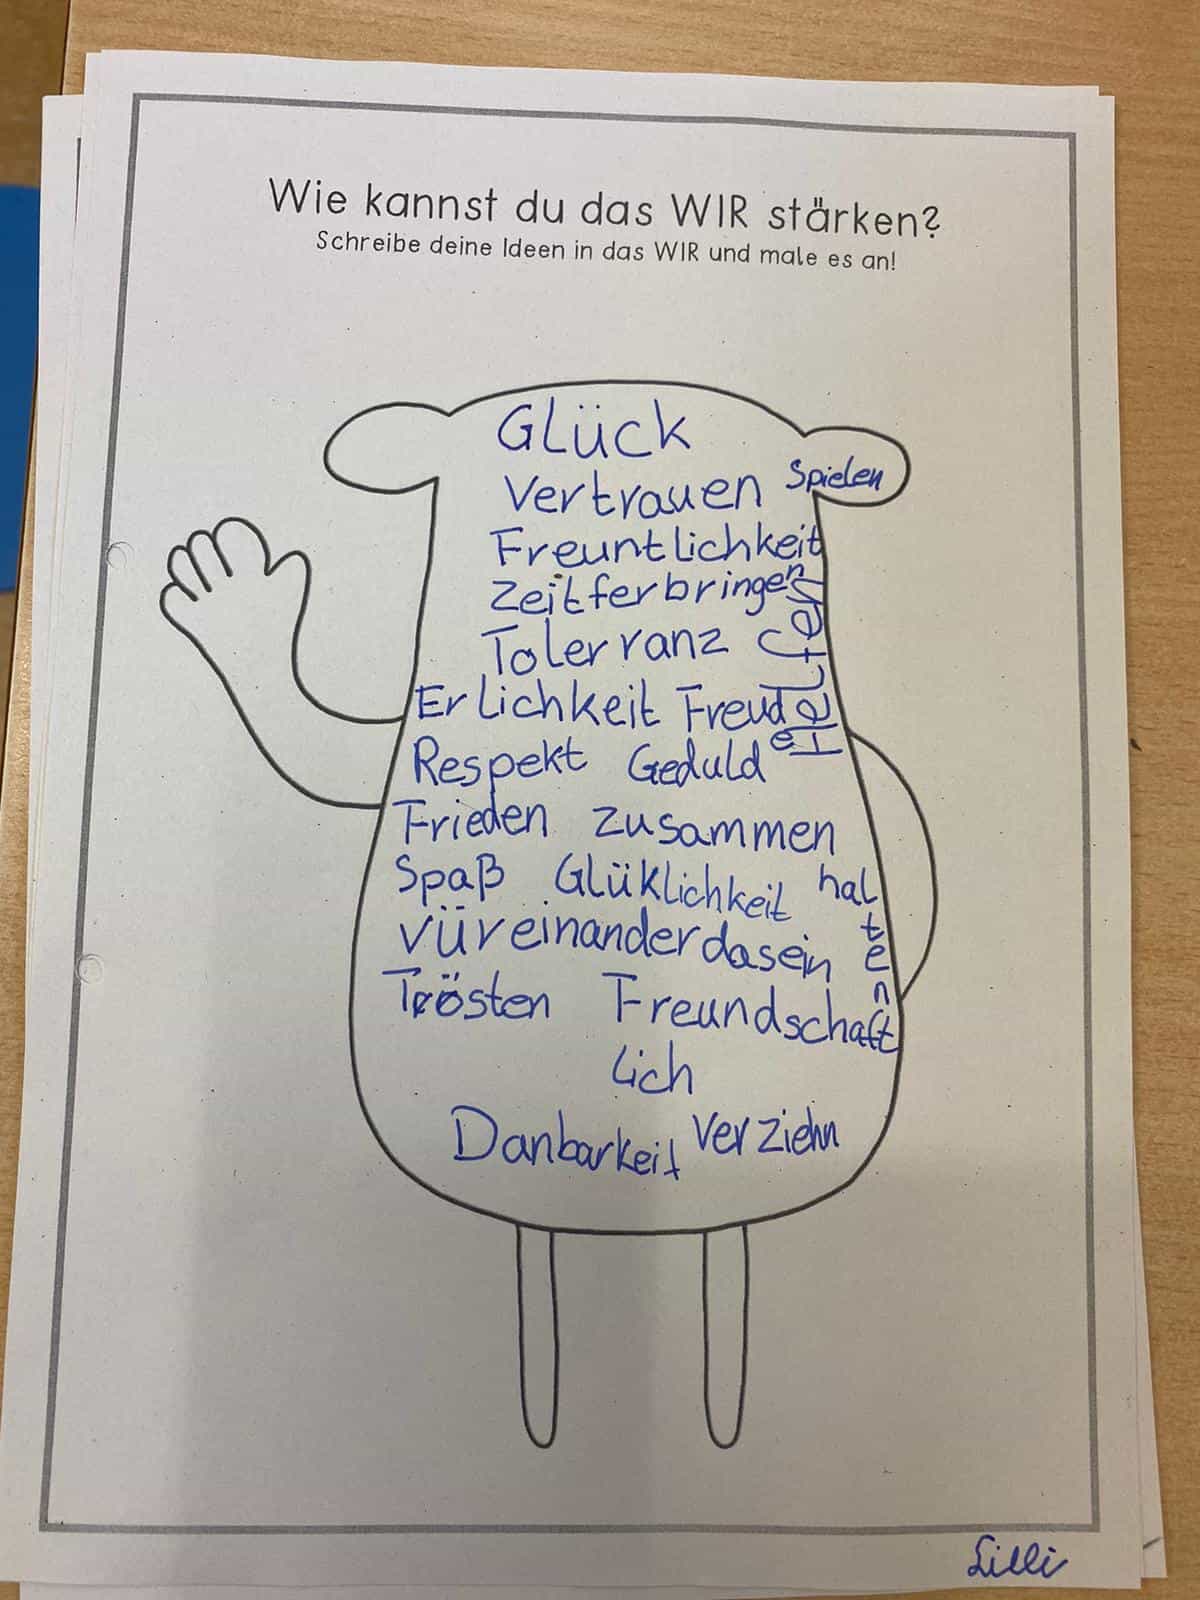 Wie kannst du das WIR stärken?
Schreibe deine Ideen in das WIR und male es an!
Glück
Vertrauen Spielen
Freuntlichkeit
Zeitferbringen
Tolerranz
Helfen
Erlichkeit Freude
Respekt Geduld
Frieden zusammen
halten
Spaß Glüklichkeit
vüreinanderdasein
Trösten Freundschaft
lich
Danbarkeit verziehn
Lilli